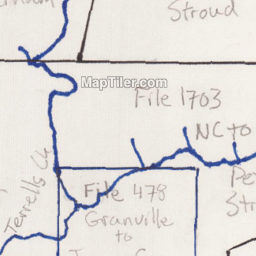 Stroud
MapTiler.com
File 1703
NC to
Terrells Ck
File 478
Granville
to